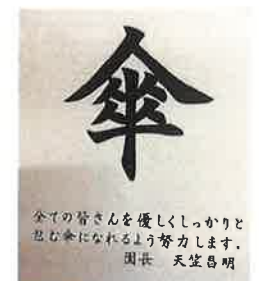 傘
全ての皆さんを優しくしっかりと
包む傘になれるよう努力します。
園長　天笠昌明